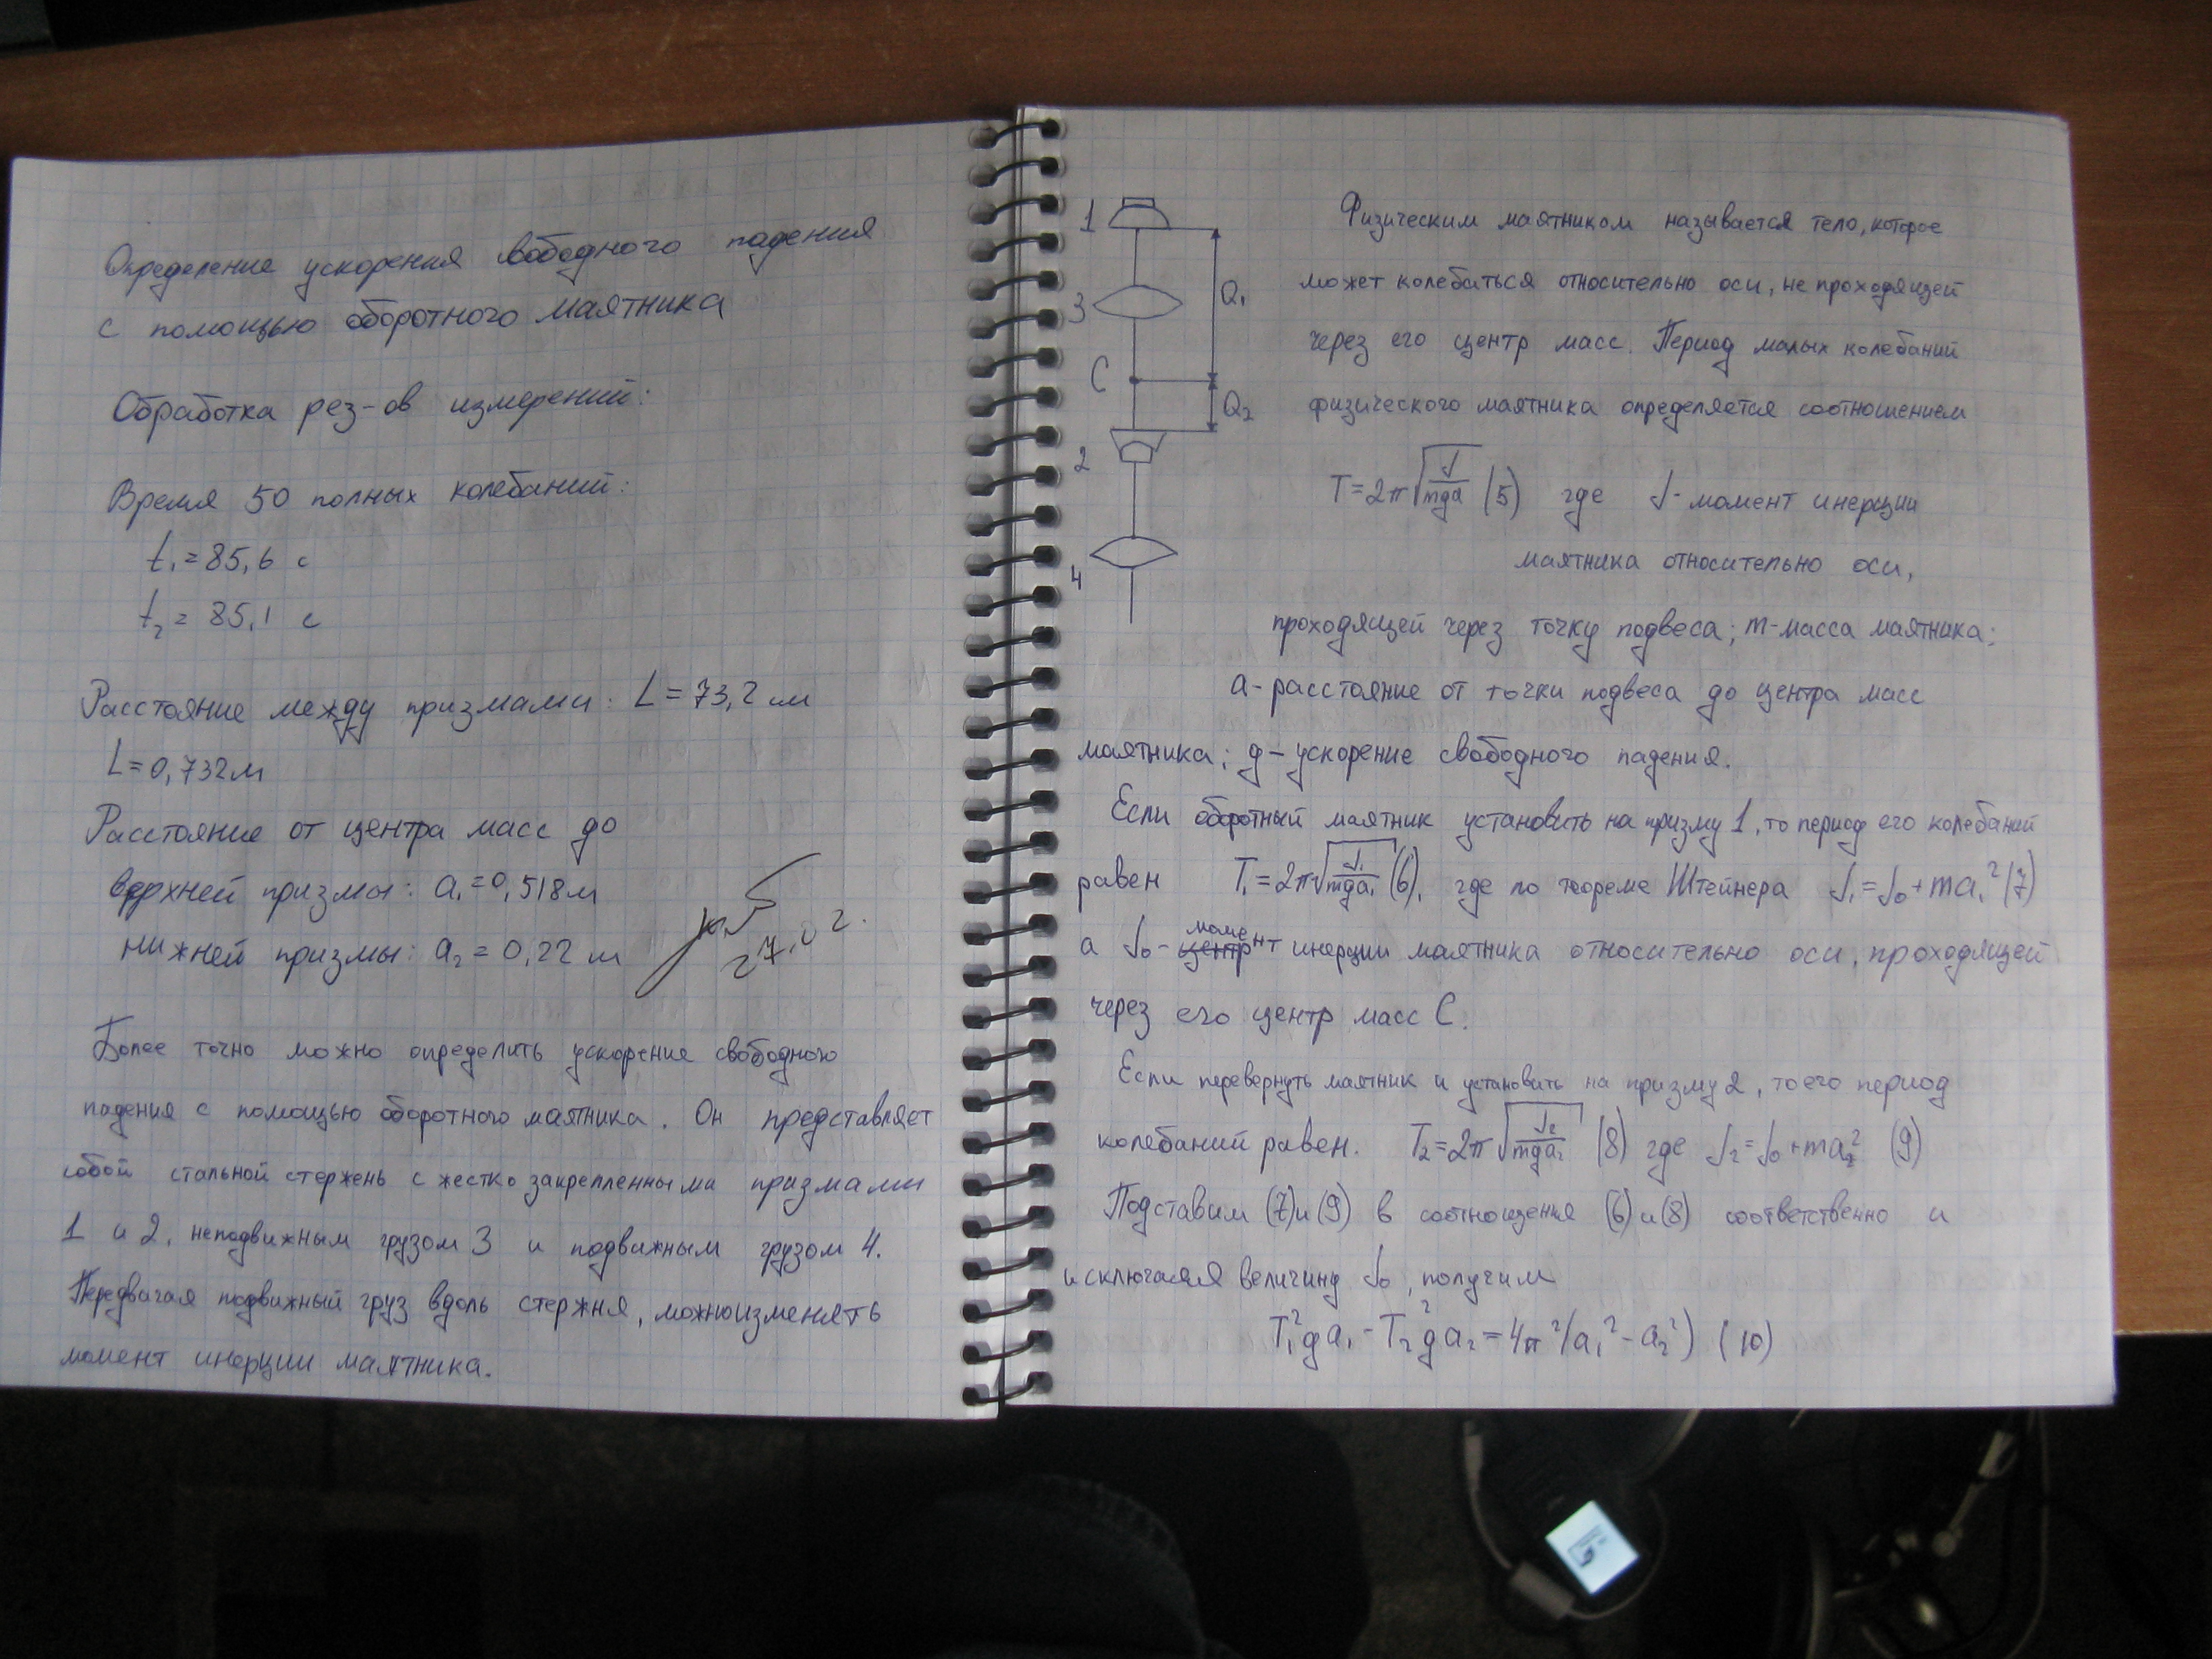 Определение ускорения свободного падения
с помощью оборотного маятника
Обработка рез-ов измерений:
Время 50 полных колебаний:
t₁ = 85,6 с
t₂ = 85,1 с
Расстояние между призмами: L = 73,2 см
L = 0,732 м
Расстояние от центра масс до
верхней призмы: a₁ = 0,518 м
нижней призмы: a₂ = 0,22 м
27.02.
Более точно можно определить ускорение свободного
падения с помощью оборотного маятника. Он представляет
собой стальной стержень с жестко закрепленными призмами
1 и 2, неподвижным грузом 3 и подвижным грузом 4.
Передвигая подвижный груз вдоль стержня, можно изменять
момент инерции маятника.
1
3
C
2
4
a₁
a₂
Физическим маятником называется тело, которое
может колебаться относительно оси, не проходящей
через его центр масс. Период малых колебаний
физического маятника определяется соотношением
T = 2π√(J/mga) (5) где J - момент инерции
маятника относительно оси,
проходящей через точку подвеса; m - масса маятника;
a - расстояние от точки подвеса до центра масс
маятника; g - ускорение свободного падения.
Если оборотный маятник установить на призму 1, то период его колебаний
равен T₁ = 2π√(J₁/mga₁) (6), где по теореме Штейнера J₁ = J₀ + ma₁² (7)
а J₀ - момент инерции маятника относительно оси, проходящей
через его центр масс C.
Если перевернуть маятник и установить на призму 2, то его период
колебаний равен. T₂ = 2π√(J₂/mga₂) (8) где J₂ = J₀ + ma₂² (9)
Подставим (7) и (9) в соотношения (6) и (8) соответственно и
исключая величину J₀, получим
T₁²ga₁ - T₂²ga₂ = 4π²(a₁² - a₂²) (10)